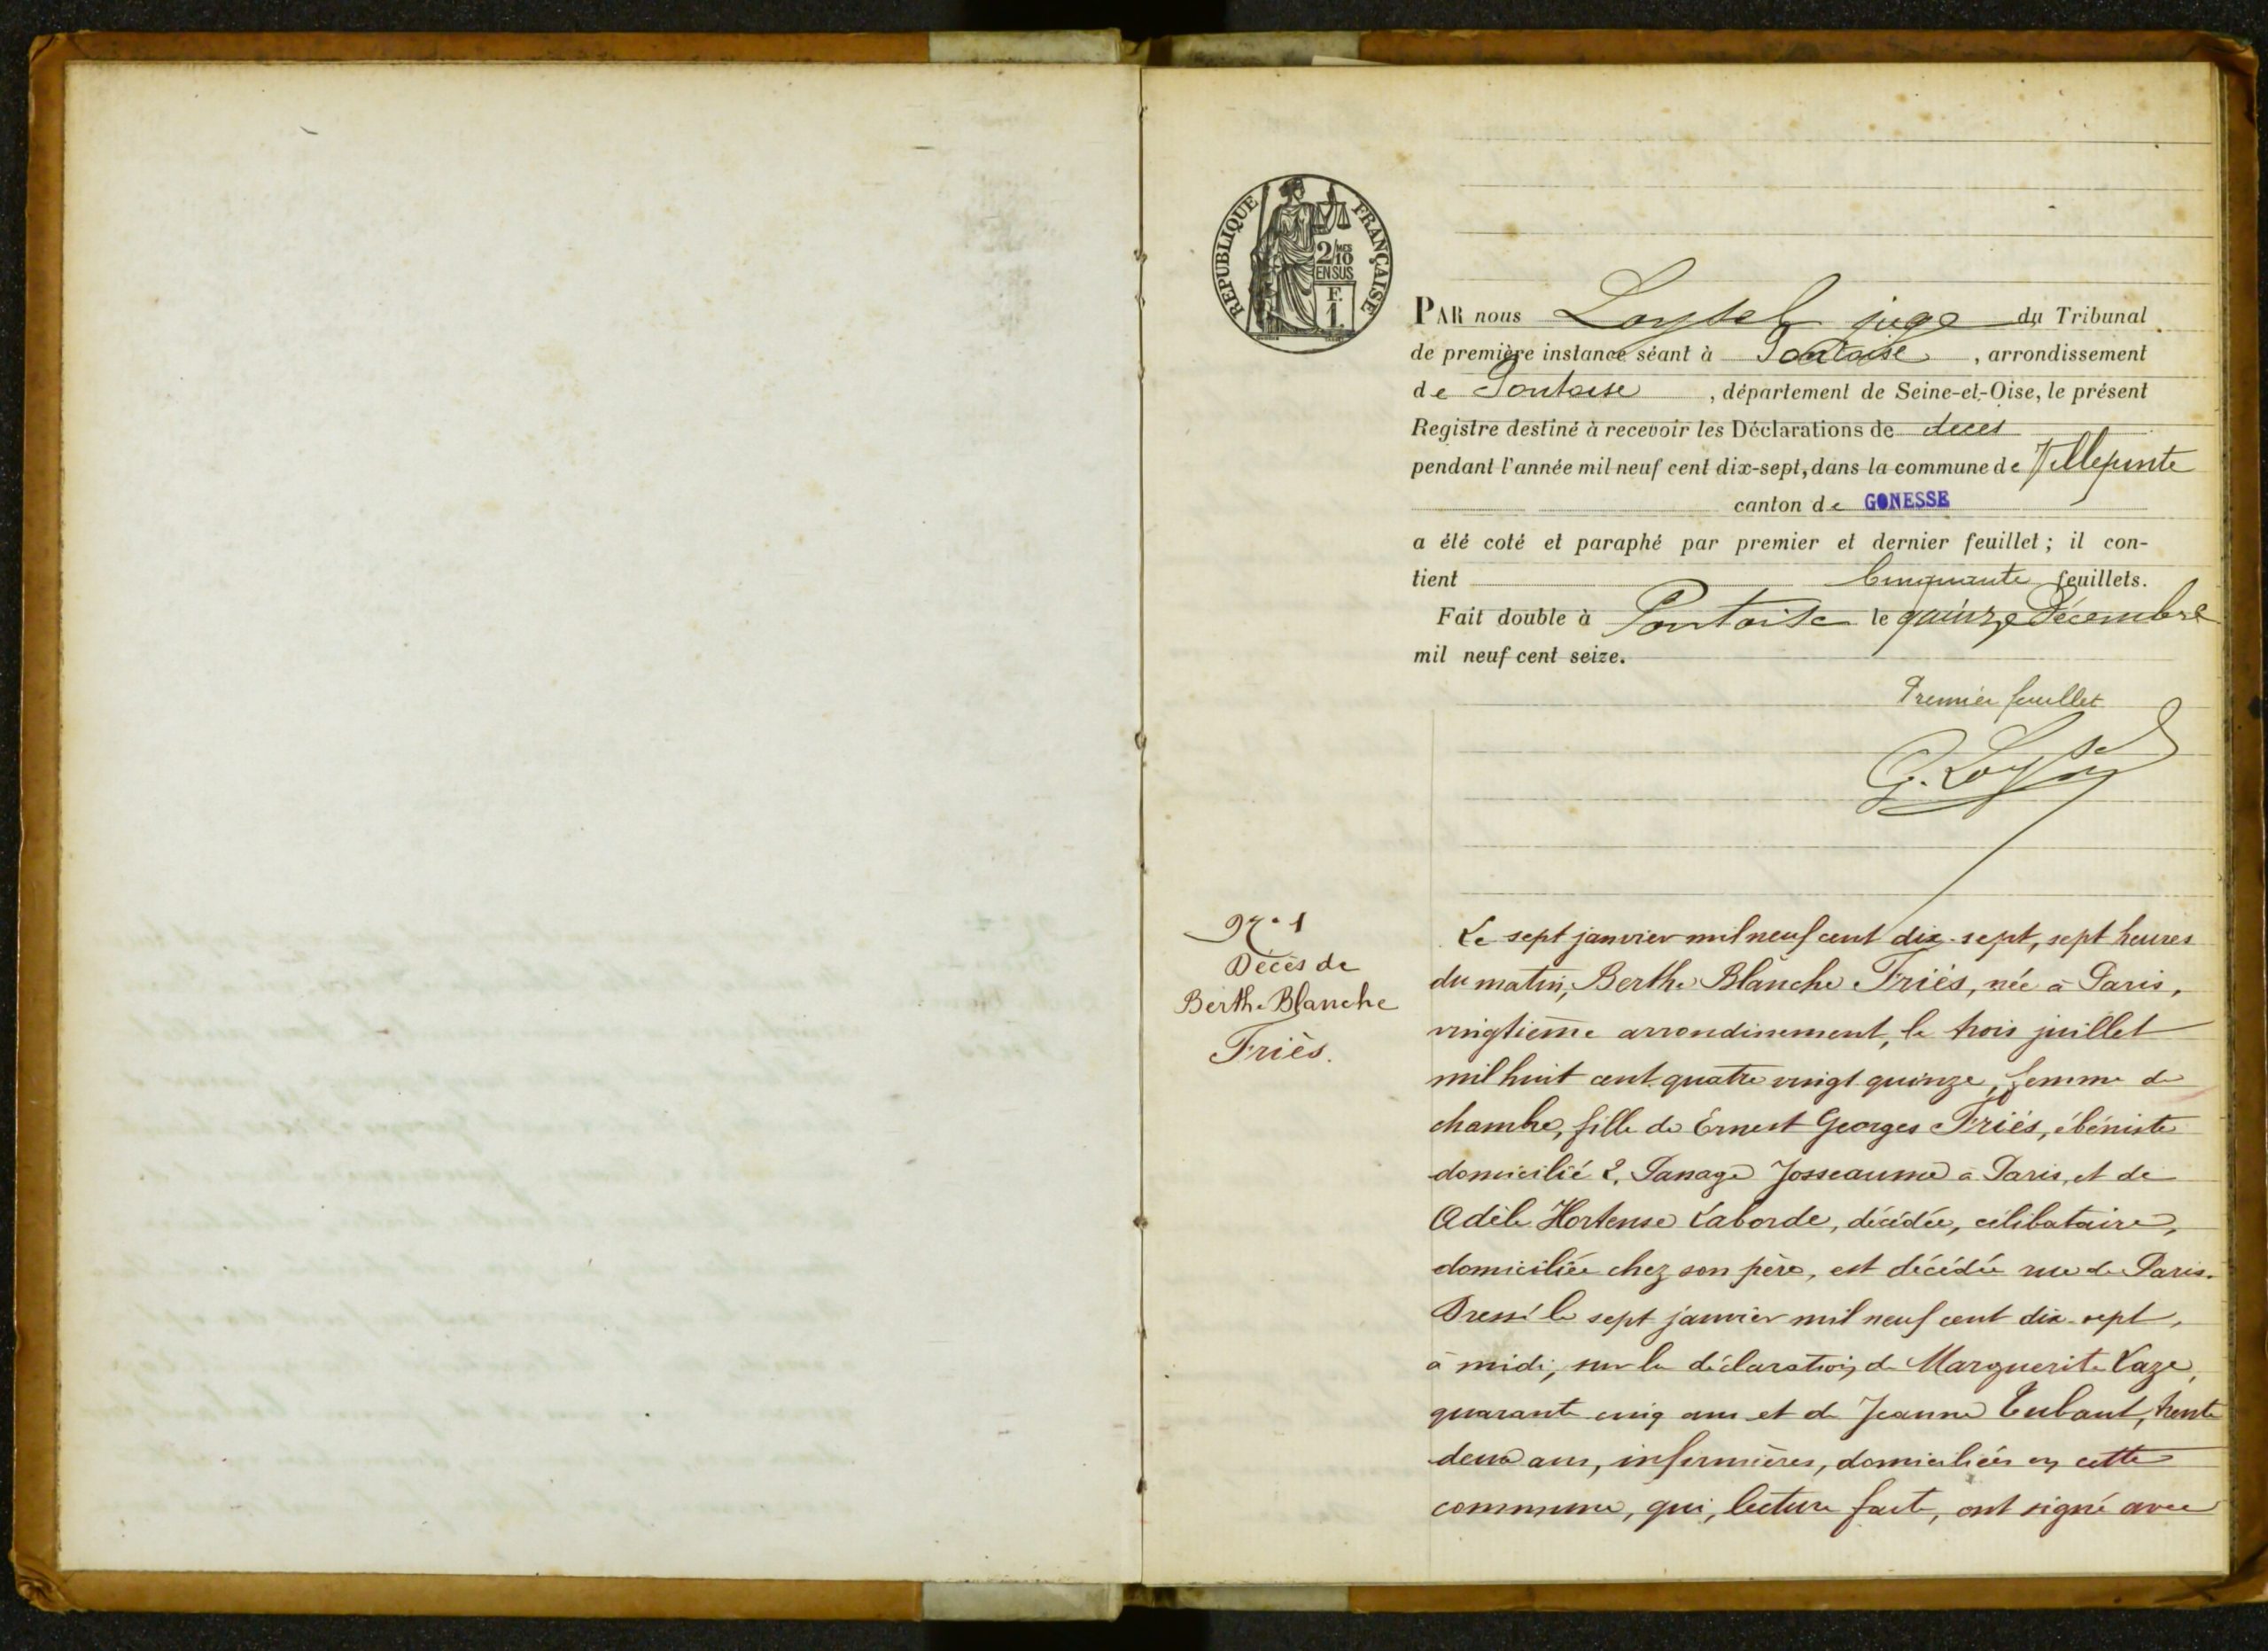 RÉPUBLIQUE FRANÇAISE
2/MES 10
EN SUS
F.
1.
PAR nous Loysel juge du Tribunal
de première instance séant à Pontoise, arrondissement
de Pontoise, département de Seine-et-Oise, le présent
Registre destiné à recevoir les Déclarations de décès
pendant l'année mil neuf cent dix-sept, dans la commune de Villepinte
canton de GONESSE
a été coté et paraphé par premier et dernier feuillet ; il con-
tient Cinquante feuillets.
Fait double à Pontoise le quinze Décembre
mil neuf cent seize.
Premier feuillet
G. Loysel
No 1
Décès de
Berthe Blanche
Friès.
Le sept janvier mil neuf cent dix-sept, sept heures
du matin, Berthe Blanche Friès, née à Paris,
vingtième arrondissement, le trois juillet
mil huit cent quatre vingt quinze, femme de
chambre, fille de Ernest Georges Friès, ébéniste
domicilié 2, Passage Josseaume à Paris, et de
Adèle Hortense Laborde, décédée, célibataire,
domiciliée chez son père, est décédée rue de Paris.
Dressé le sept janvier mil neuf cent dix-sept,
à midi, sur la déclaration de Marguerite Laze,
quarante cinq ans et de Jeanne, trente
deux ans, infirmières, domiciliées en cette
commune, qui, lecture faite, ont signé avec